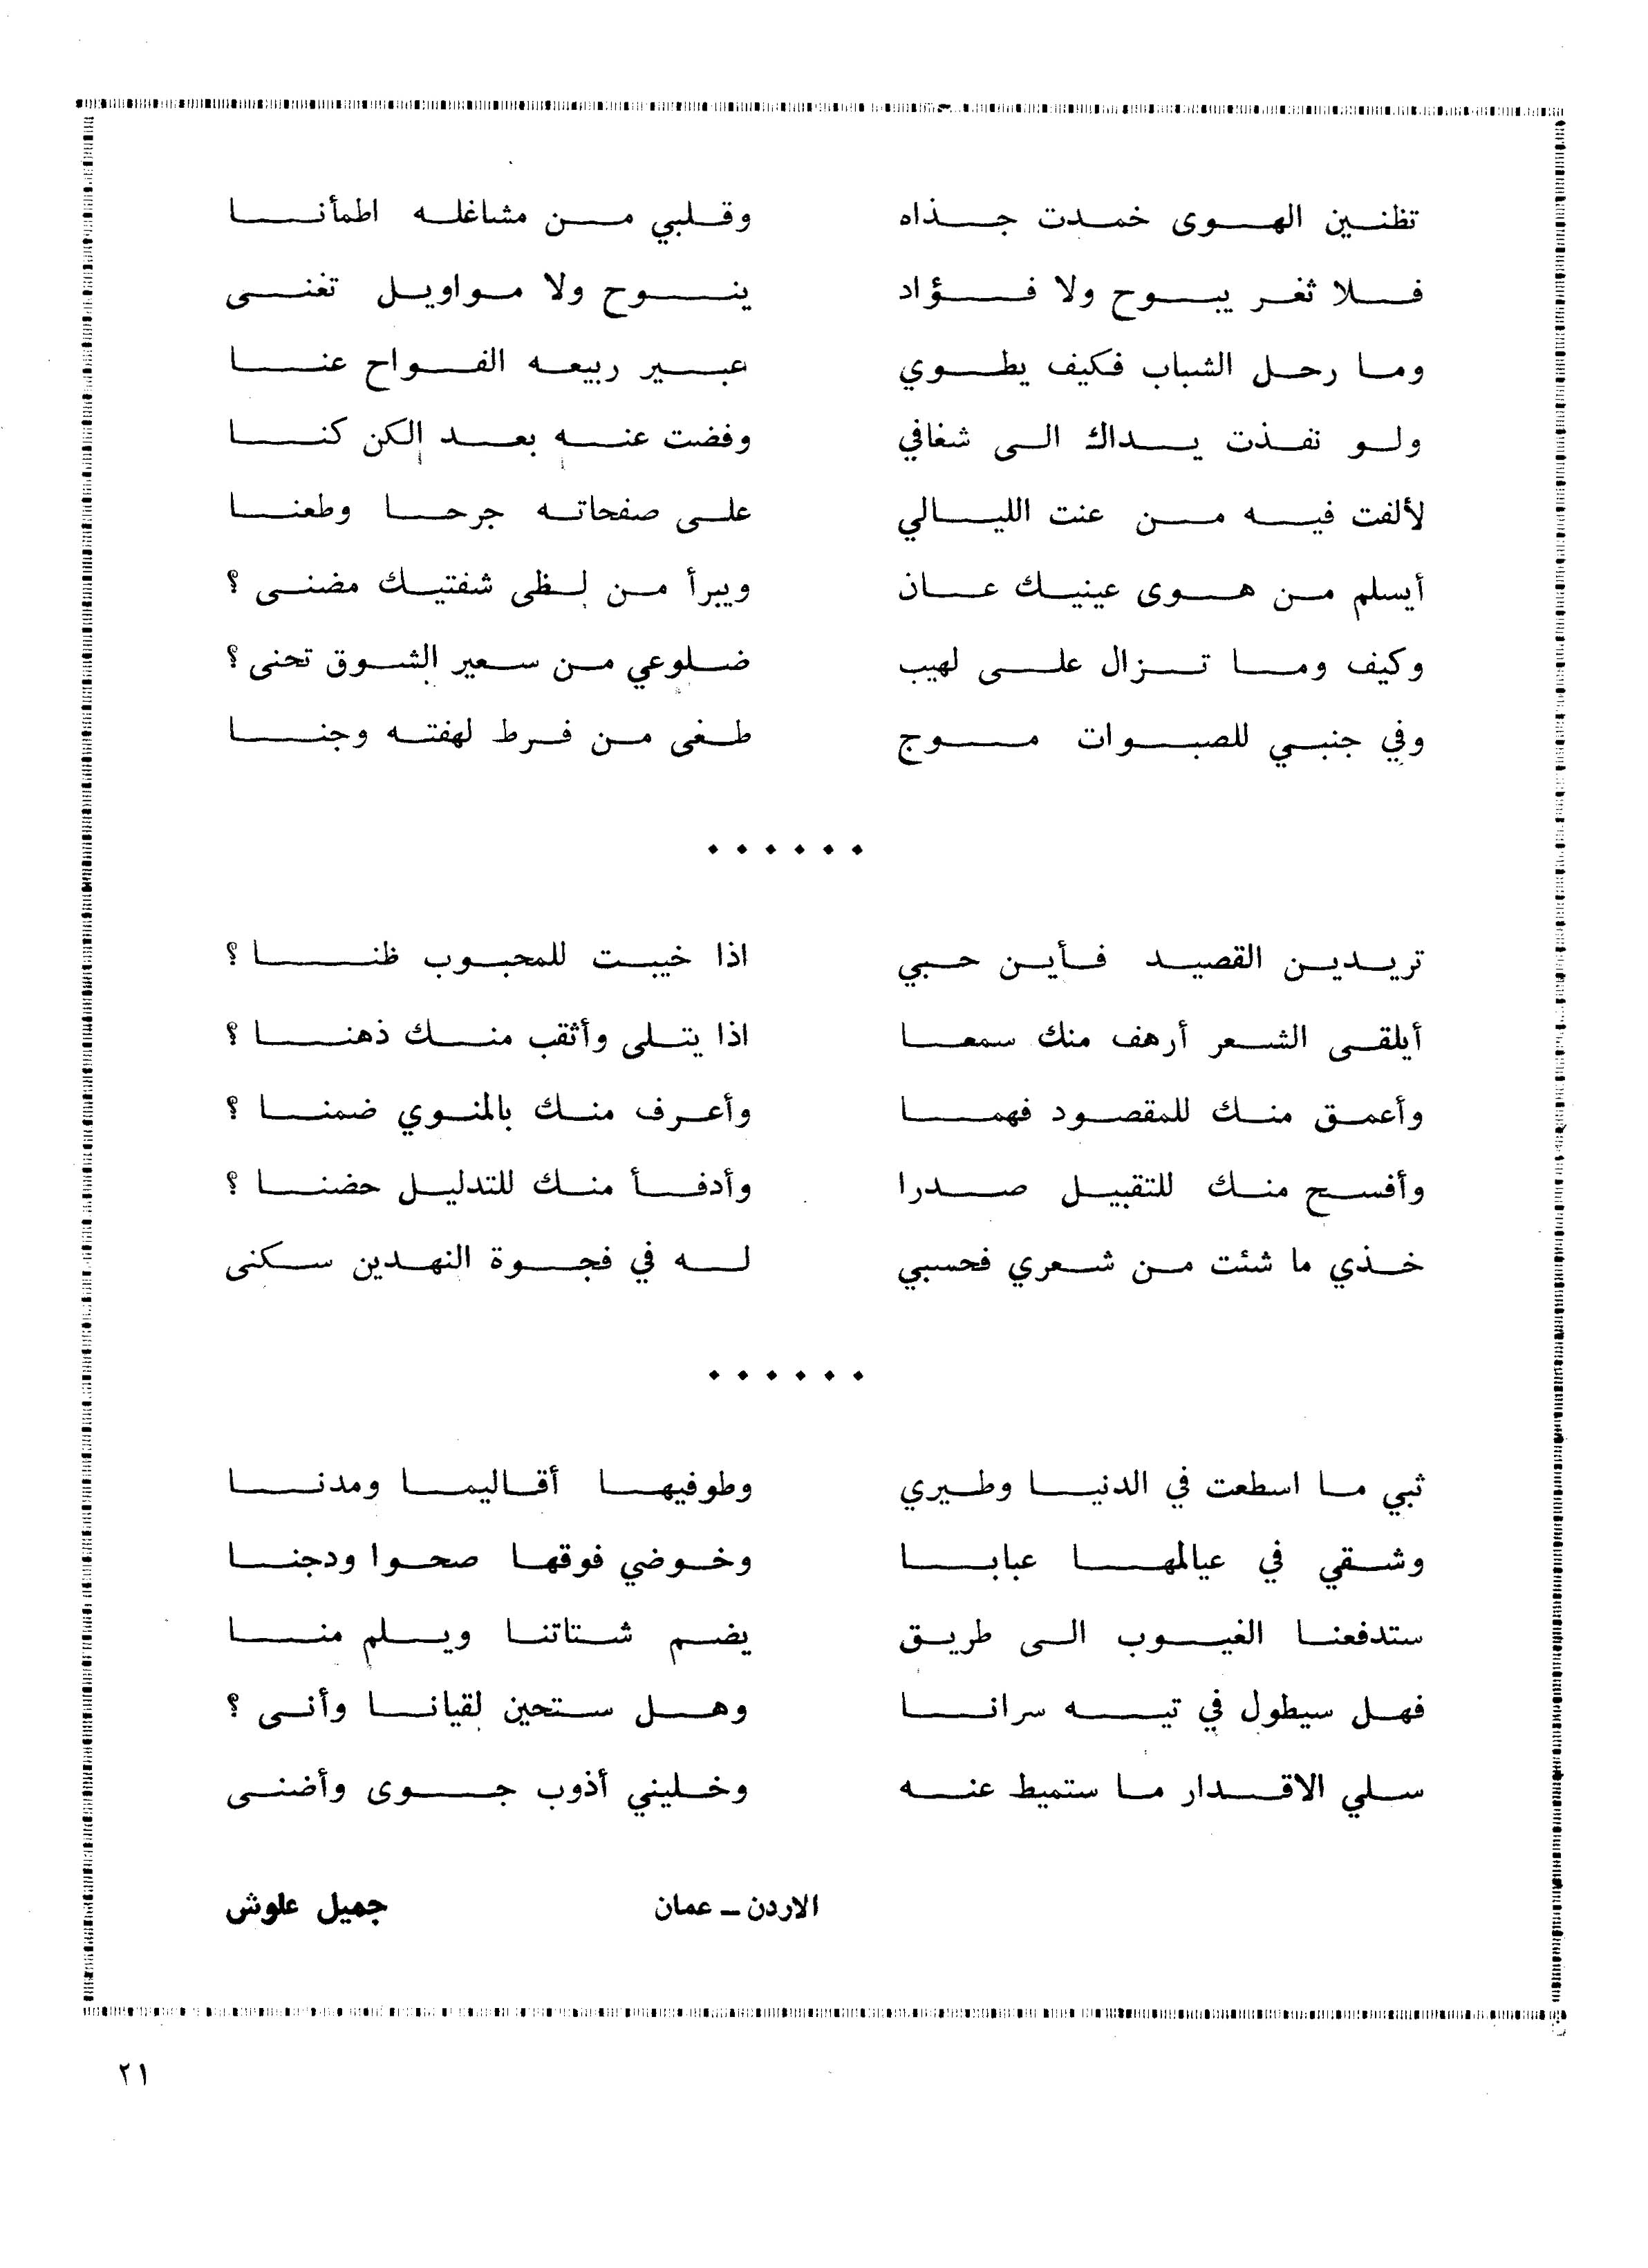 تظنين الهوى خمدت جذاه وقلبي من مشاغله اطمأنا
فلا ثغر يبوح ولا فؤاد ينوح ولا مواويل تغنى
وما رحل الشباب فكيف يطوي عبير ربيعه الفواح عنا
ولو نفذت يداك الى شغافي وفضت عنه بعد الكن كنا
لألفت فيه من عنت الليالي على صفحاته جرحا وطعنا
أيسلم من هوى عينيك عان ويبرأ من لظى شفتيك مضنى ؟
وكيف وما تزال على لهيب ضلوعي من سعير الشوق تحنى ؟
وفي جنبي للصبوات موج طغى من فرط لهفته وجنا
• • • • • •
تريدين القصيد فأين حبي اذا خيبت للمحبوب ظنا ؟
أيلقى الشعر أرهف منك سمعا اذا يتلى وأثقب منك ذهنا ؟
وأعمق منك للمقصود فهما وأعرف منك بالمنوي ضمنا ؟
وأفسح منك للتقبيل صدرا وأدفأ منك للتدليل حضنا ؟
خذي ما شئت من شعري فحسبي له في فجوة النهدين سكنى
• • • • • •
ثبي ما اسطعت في الدنيا وطيري وطوفيها أقاليما ومدنا
وشقي في عيالمها عبابا وخوضي فوقها صحوا ودجنا
ستدفعنا الغيوب الى طريق يضم شتاتنا ويلم منا
فهل سيطول في تيه سرانا وهل ستحين لقيانا وأنى ؟
سلي الاقدار ما ستميط عنه وخليني أذوب جوى وأضنى
الاردن – عمان جميل علوش
٢١